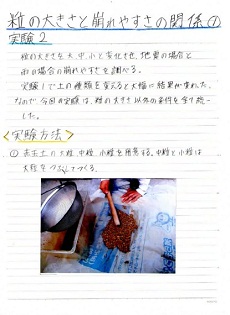 粒の大きさと崩れやすさの関係①
実験2
粒の大きさを大、中、小と変化させ、地震の場合と
雨の場合の崩れやすさを調べる。
実験1で土の種類を変えると大幅に結果が変わった。
なので、今回の実験は、粒の大きさ以外の条件を全て統一
した。
<実験方法>
① 赤玉土の大粒、中粒、小粒を用意する。中粒と小粒は
大粒をつぶしてつくる。